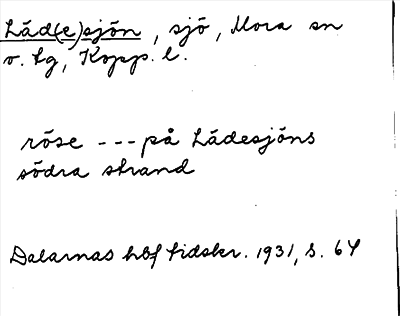 Låd(e)sjön, sjö, Mora sn
v. lg, Kopp. l.
röse --- på Lådesjöns
södra strand
Dalarnas hbf tidskr. 1931, s. 64